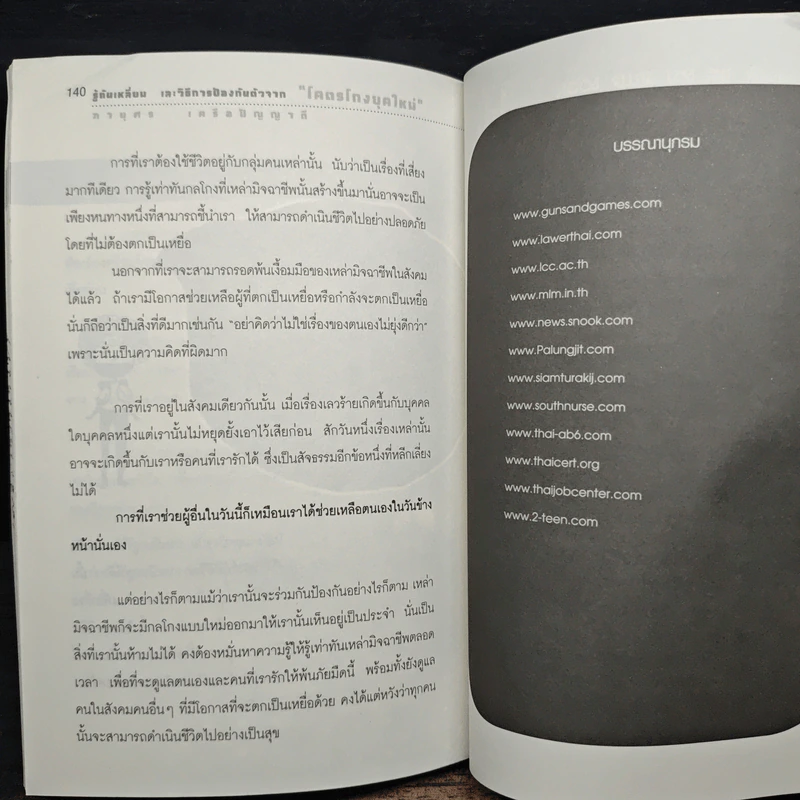 140 รู้ทันเหลี่ยม และวิธีการป้องกันตัวจาก "โคตรโกงยุคใหม่"
การที่เราต้องใช้ชีวิตอยู่กับกลุ่มคนเหล่านั้น นับว่าเป็นเรื่องที่เสี่ยง
มากทีเดียว การรู้เท่าทันกลโกงที่เหล่ามิจฉาชีพนั้นสร้างขึ้นมานั่นอาจจะเป็น
เพียงหนทางหนึ่งที่สามารถชี้นำเรา ให้สามารถดำเนินชีวิตไปอย่างปลอดภัย
โดยที่ไม่ต้องตกเป็นเหยื่อ
นอกจากที่เราจะสามารถรอดพ้นเงื้อมมือของเหล่ามิจฉาชีพในสังคม
ได้แล้ว ถ้าเรามีโอกาสช่วยเหลือผู้ที่ตกเป็นเหยื่อหรือกำลังจะตกเป็นเหยื่อ
นั่นก็ถือว่าเป็นสิ่งที่ดีมากเช่นกัน "อย่าคิดว่าไม่ใช่เรื่องของตนเองไม่ยุ่งดีกว่า"
เพราะนั่นเป็นความคิดที่ผิดมาก
การที่เราอยู่ในสังคมเดียวกันนั้น เมื่อเรื่องเลวร้ายเกิดขึ้นกับบุคคล
ใดบุคคลหนึ่งแต่เรานั้นไม่หยุดยั้งเอาไว้เสียก่อน สักวันหนึ่งเรื่องเหล่านั้น
อาจจะเกิดขึ้นกับเราหรือคนที่เรารักได้ ซึ่งเป็นสัจธรรมอีกข้อหนึ่งที่หลีกเลี่ยง
ไม่ได้
การที่เราช่วยผู้อื่นในวันนี้ก็เหมือนเราได้ช่วยเหลือตนเองในวันข้าง
หน้านั่นเอง
แต่อย่างไรก็ตามแม้ว่าเรานั้นจะร่วมกันป้องกันอย่างไรก็ตาม เหล่า
มิจฉาชีพก็จะมีกลโกงแบบใหม่ออกมาให้เรานั้นเห็นอยู่เป็นประจำ นั่นเป็น
สิ่งที่เรานั้นห้ามไม่ได้ คงต้องหมั่นหาความรู้ให้รู้เท่าทันเหล่ามิจฉาชีพตลอด
เวลา เพื่อที่จะดูแลตนเองและคนที่เรารักให้พ้นภัยมืดนี้ พร้อมทั้งยังดูแล
คนในสังคมคนอื่นๆ ที่มีโอกาสที่จะตกเป็นเหยื่อด้วย คงได้แต่หวังว่าทุกคน
นั้นจะสามารถดำเนินชีวิตไปอย่างเป็นสุข
บรรณานุกรม
www.gunsandgames.com
www.lawerthai.com
www.lcc.ac.th
www.mlm.in.th
www.news.snook.com
www.Palungjit.com
www.siamturakij.com
www.southnurse.com
www.thai-ab6.com
www.thaicert.org
www.thaijobcenter.com
www.2-teen.com